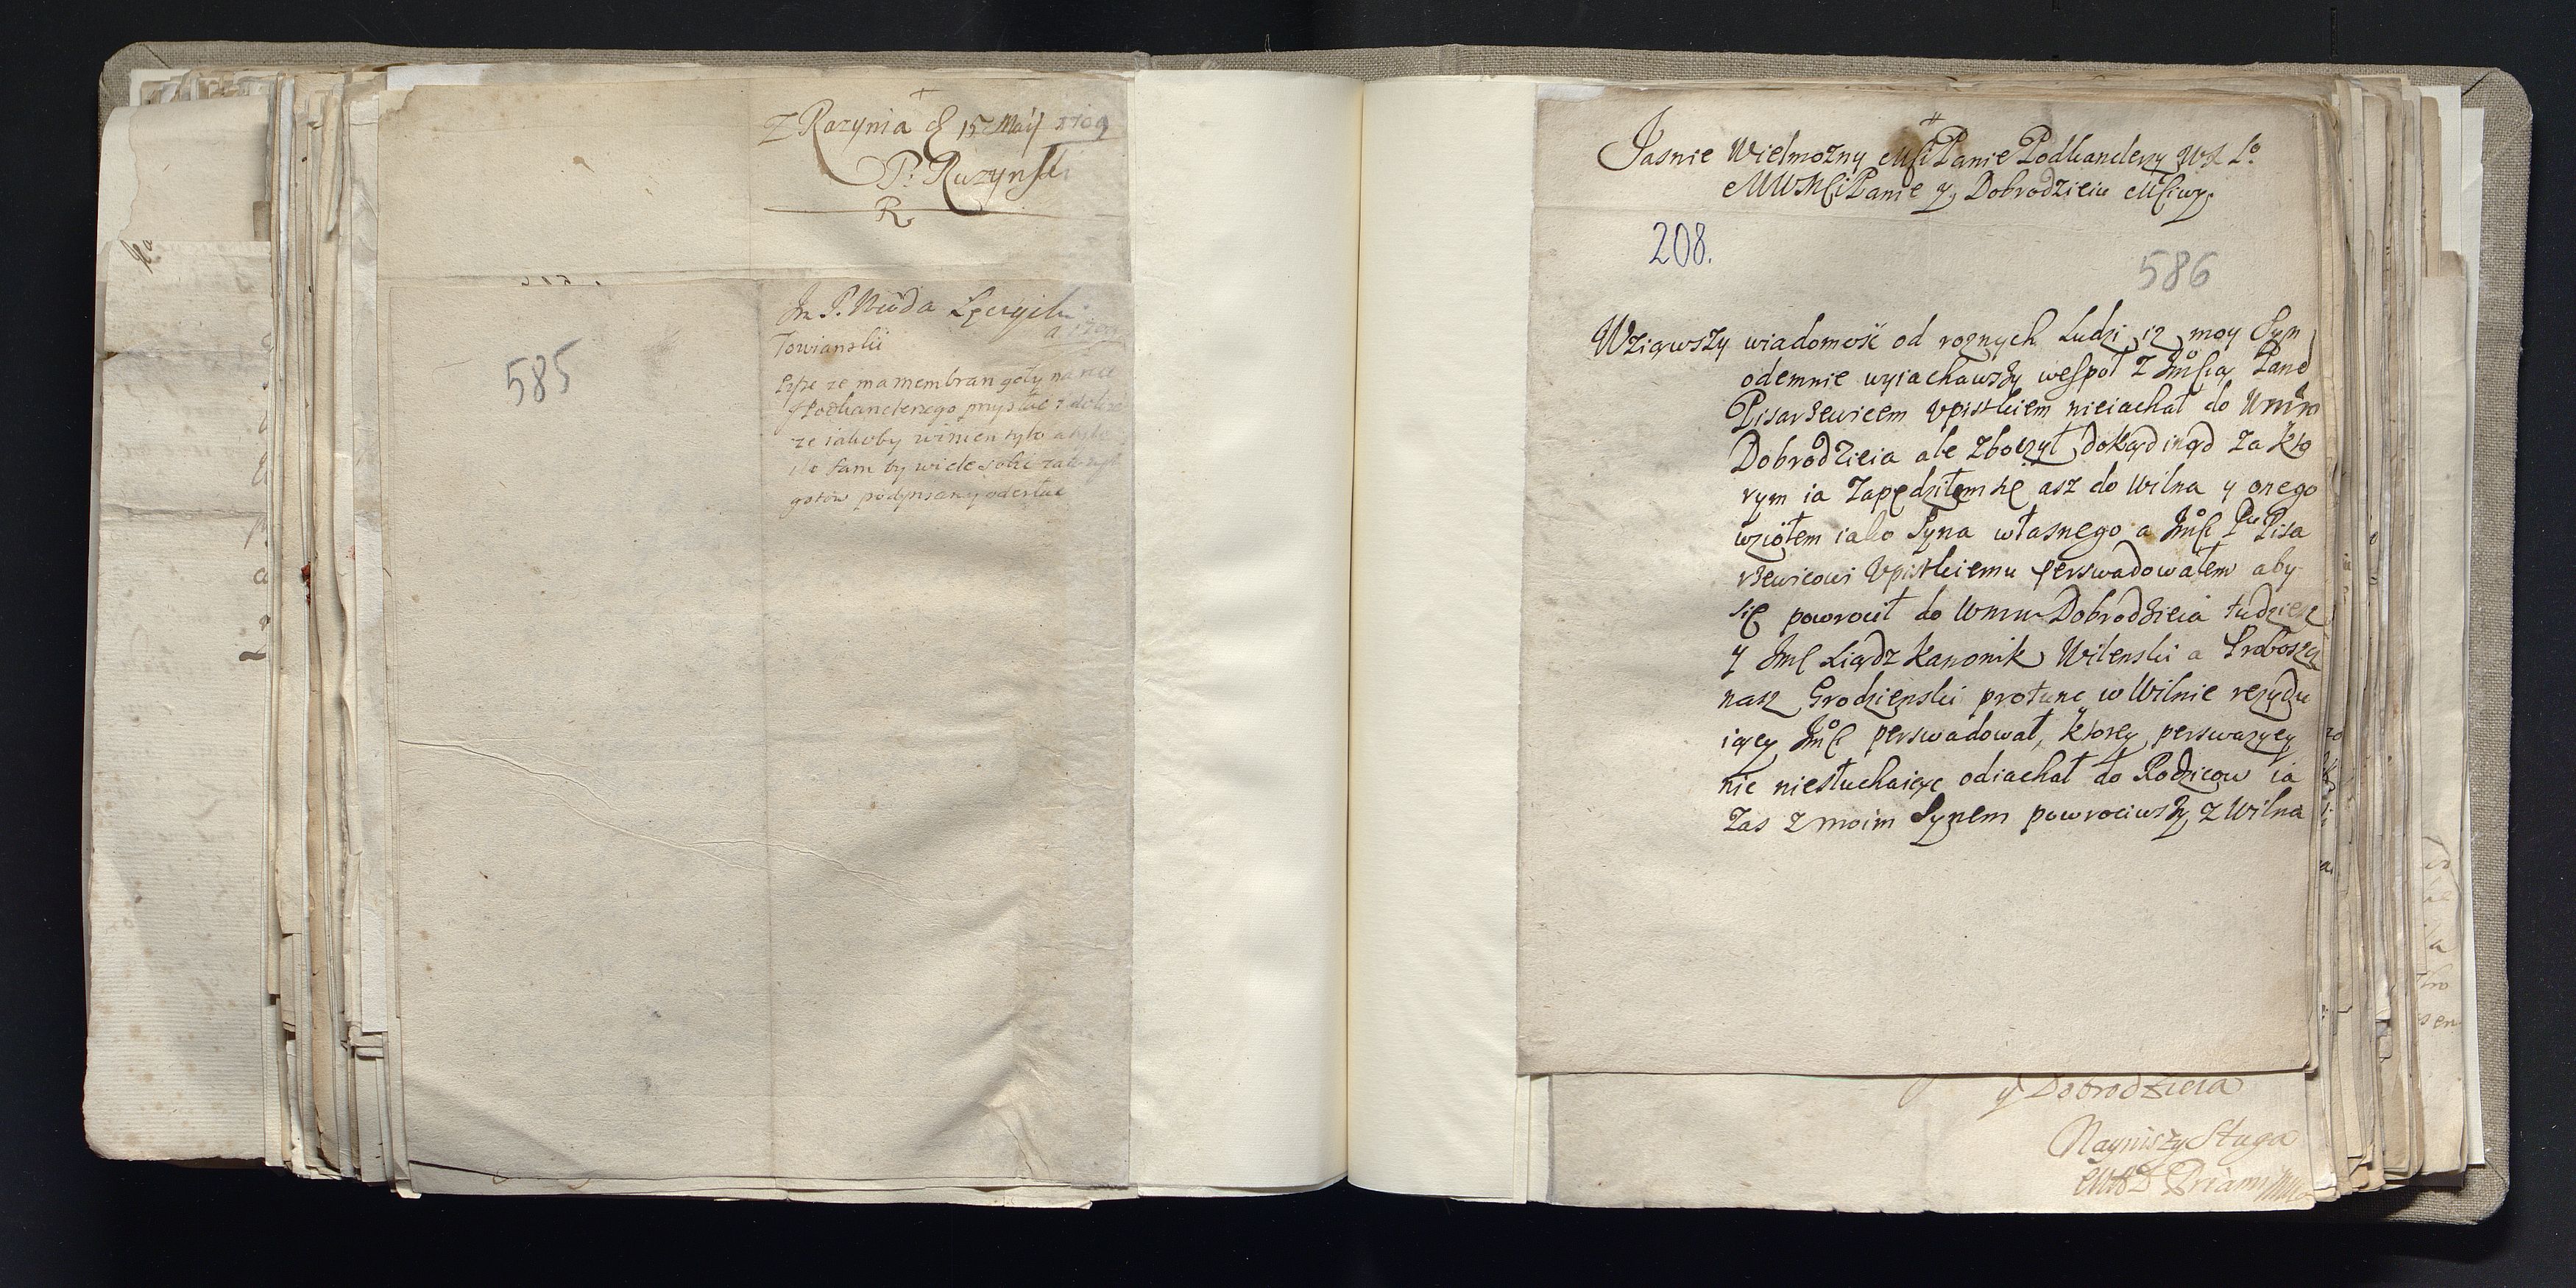 Z Rozynia d 15 Maij 1709
P: Ruzynski
R.
Towianski
pisze ze ma membran goły na
P Podkanclerzego przysłac
ze iakoby winien tylo a tylo
sam by wiele sobie
gotow podpisany odesłac
585
Jasnie Wielmozny Mści Panie Podkanclerzy W X Lo
MWMsci Panie y Dobrodzieiu Msciwy
208.
586
Wziąwszy wiadomosc od roznych Ludzi, iz moy Syn
odemnie wyiachawszy wespoł z Jmscią Pane
Pisarzewicem Vpitskiem nieiachał do Wmm
Dobrodzieia ale zboczył dokąd inąd za kto
rym ia zapędziłem sie asz do Wilna y onego
wziołem iako Syna własnego a Jmsc Pu Pisa
rzewicowi Vpitskiemu perswadowałem aby
się powrocił do Wmm Dobrodzieia tudziesz
y Jmc Xiądz Kanonik Wilenski a Proboszcz
nasz Grodzienski protunc w Wilnie rezydu
iący Jmsc perswadował, ktorey perswazyey
nic niesłuchaiąc odiachał do Rodzicow ia
zas z moim Synem powrociwszy z Wilna
y Dobrodzieia
Nayniszy Sługa